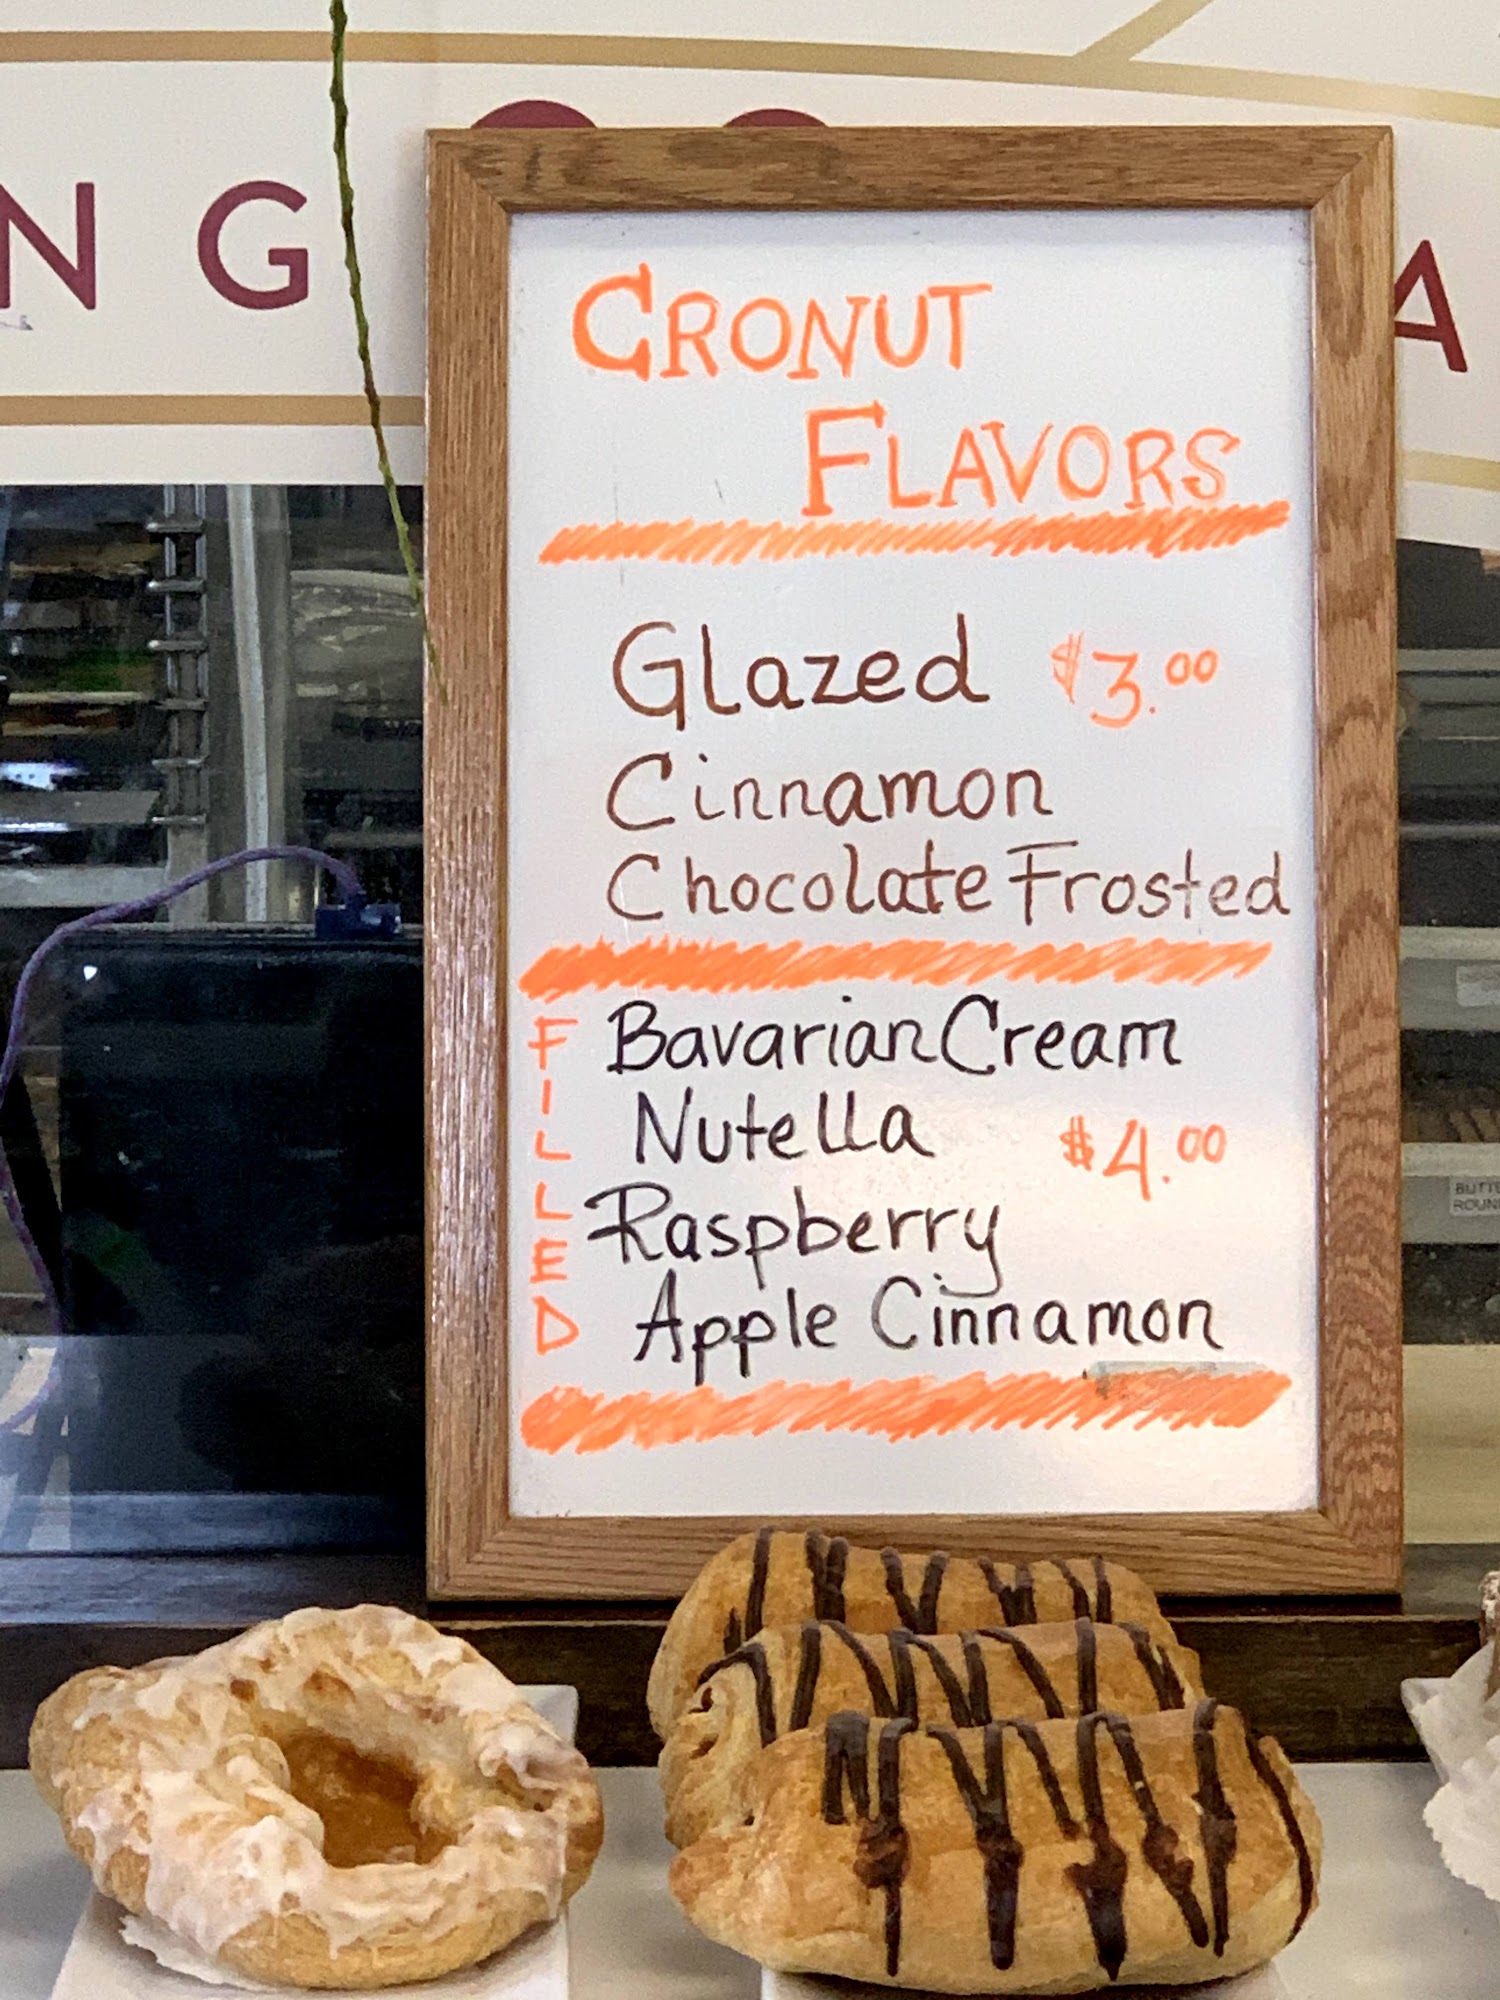 NG
A
CRONUT
FLAVORS
Glazed $3.00
Cinnamon
Chocolate Frosted
FILLED
Bavarian Cream
Nutella $4.00
Raspberry
Apple Cinnamon